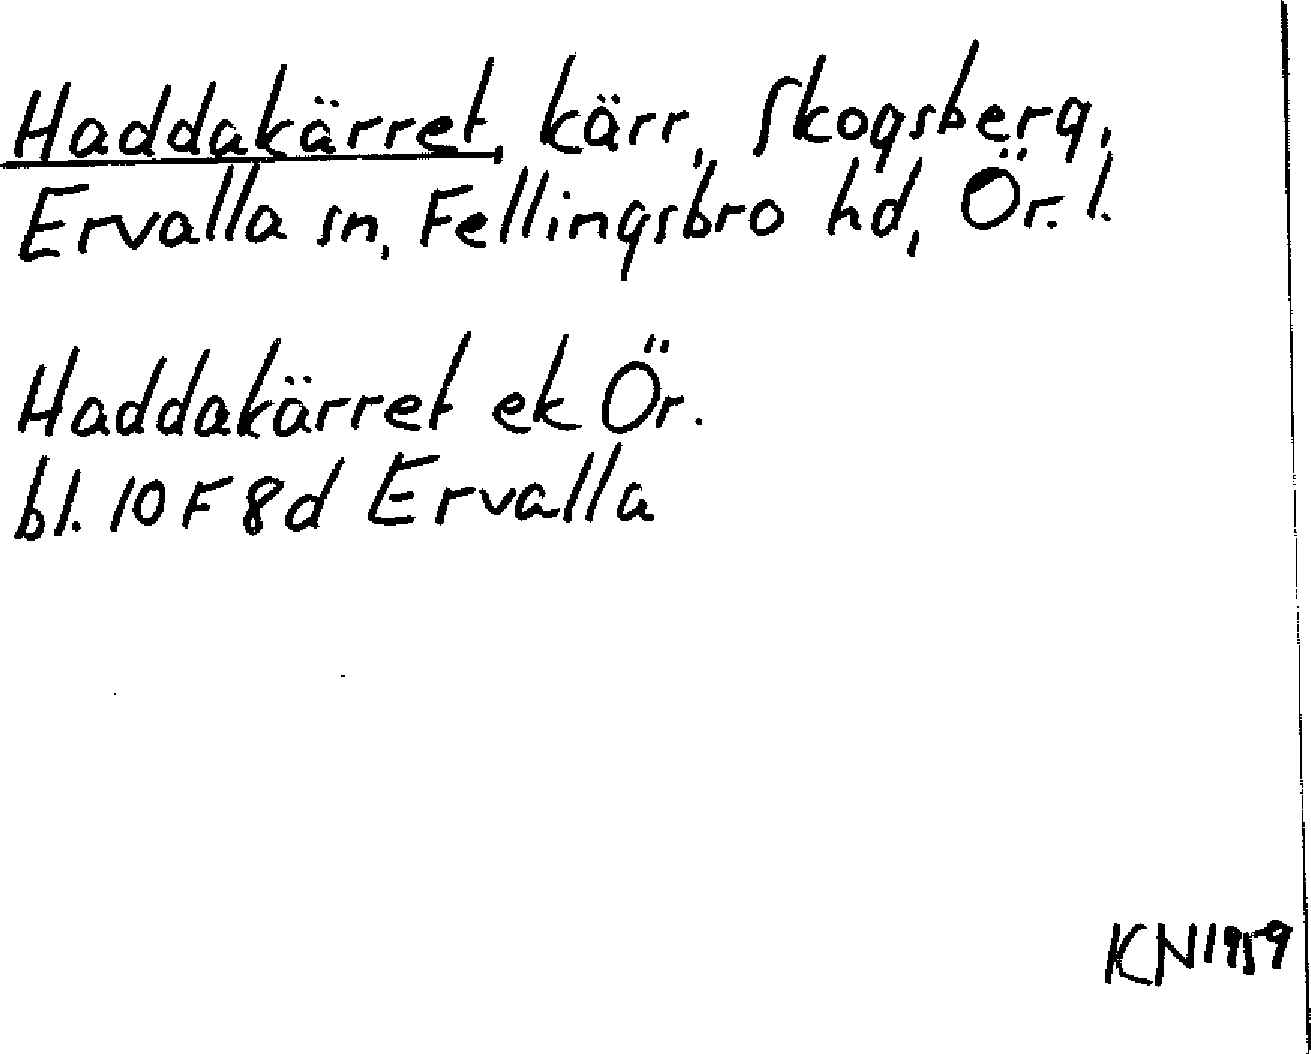 Haddakärret, kärr, Skogsberg,
Ervalla sn, Fellingsbro hd, Ör. l.
Haddakärret ek Ör.
bl. 10 F 8d Ervalla
KN 1959